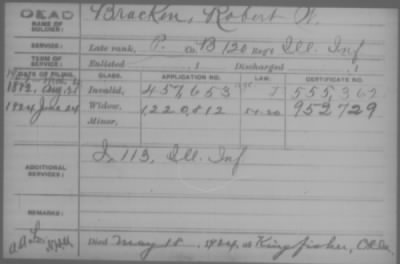 DEAD
NAME OF SOLDIER:
Bracken, Robert W.
SERVICE:
Late rank, P. Co. B 120 Reg't Ill. Inf
TERM OF SERVICE:
Enlisted , 1 Discharged , 1
DATE OF FILING. CLASS. APPLICATION NO. LAW. CERTIFICATE NO.
1882, Aug. 21 Invalid, 457,653 J 555,362
1924 June 24 Widow, 1,220,812 952729
Minor,
ADDITIONAL SERVICES:
I 113, Ill. Inf
REMARKS:
Died May 18, 1924, at Kingfisher, Okla